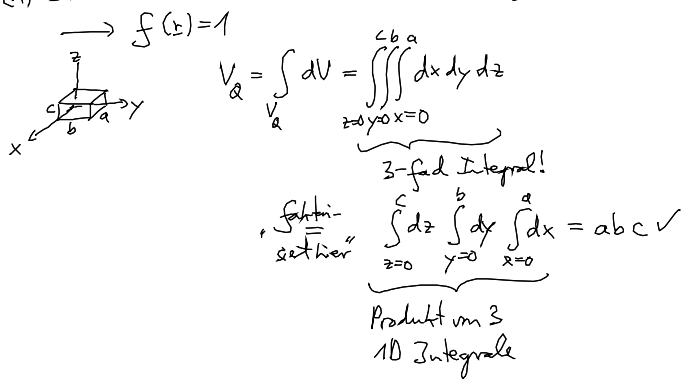 → f(r) = 1
z
c
y
a
b
x
V_Q = ∫_{V_Q} dV = ∫_{z=0}^{c} ∫_{y=0}^{b} ∫_{x=0}^{a} dx dy dz
3-fad Integral!
"faktori-
=
siert hier" ∫_{z=0}^{c} dz ∫_{y=0}^{b} dy ∫_{x=0}^{a} dx = a b c ✓
Produkt von 3
1D Integrale